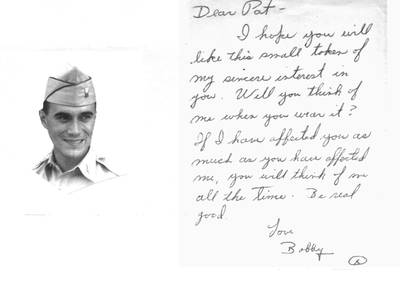 Dear Pat -
I hope you will
like this small token of
my sincere interest in
you. Will you think of
me when you wear it?
If I have affected you as
much as you have affected
me, you will think of me
all the time. Be real
good.
Love
Bobby